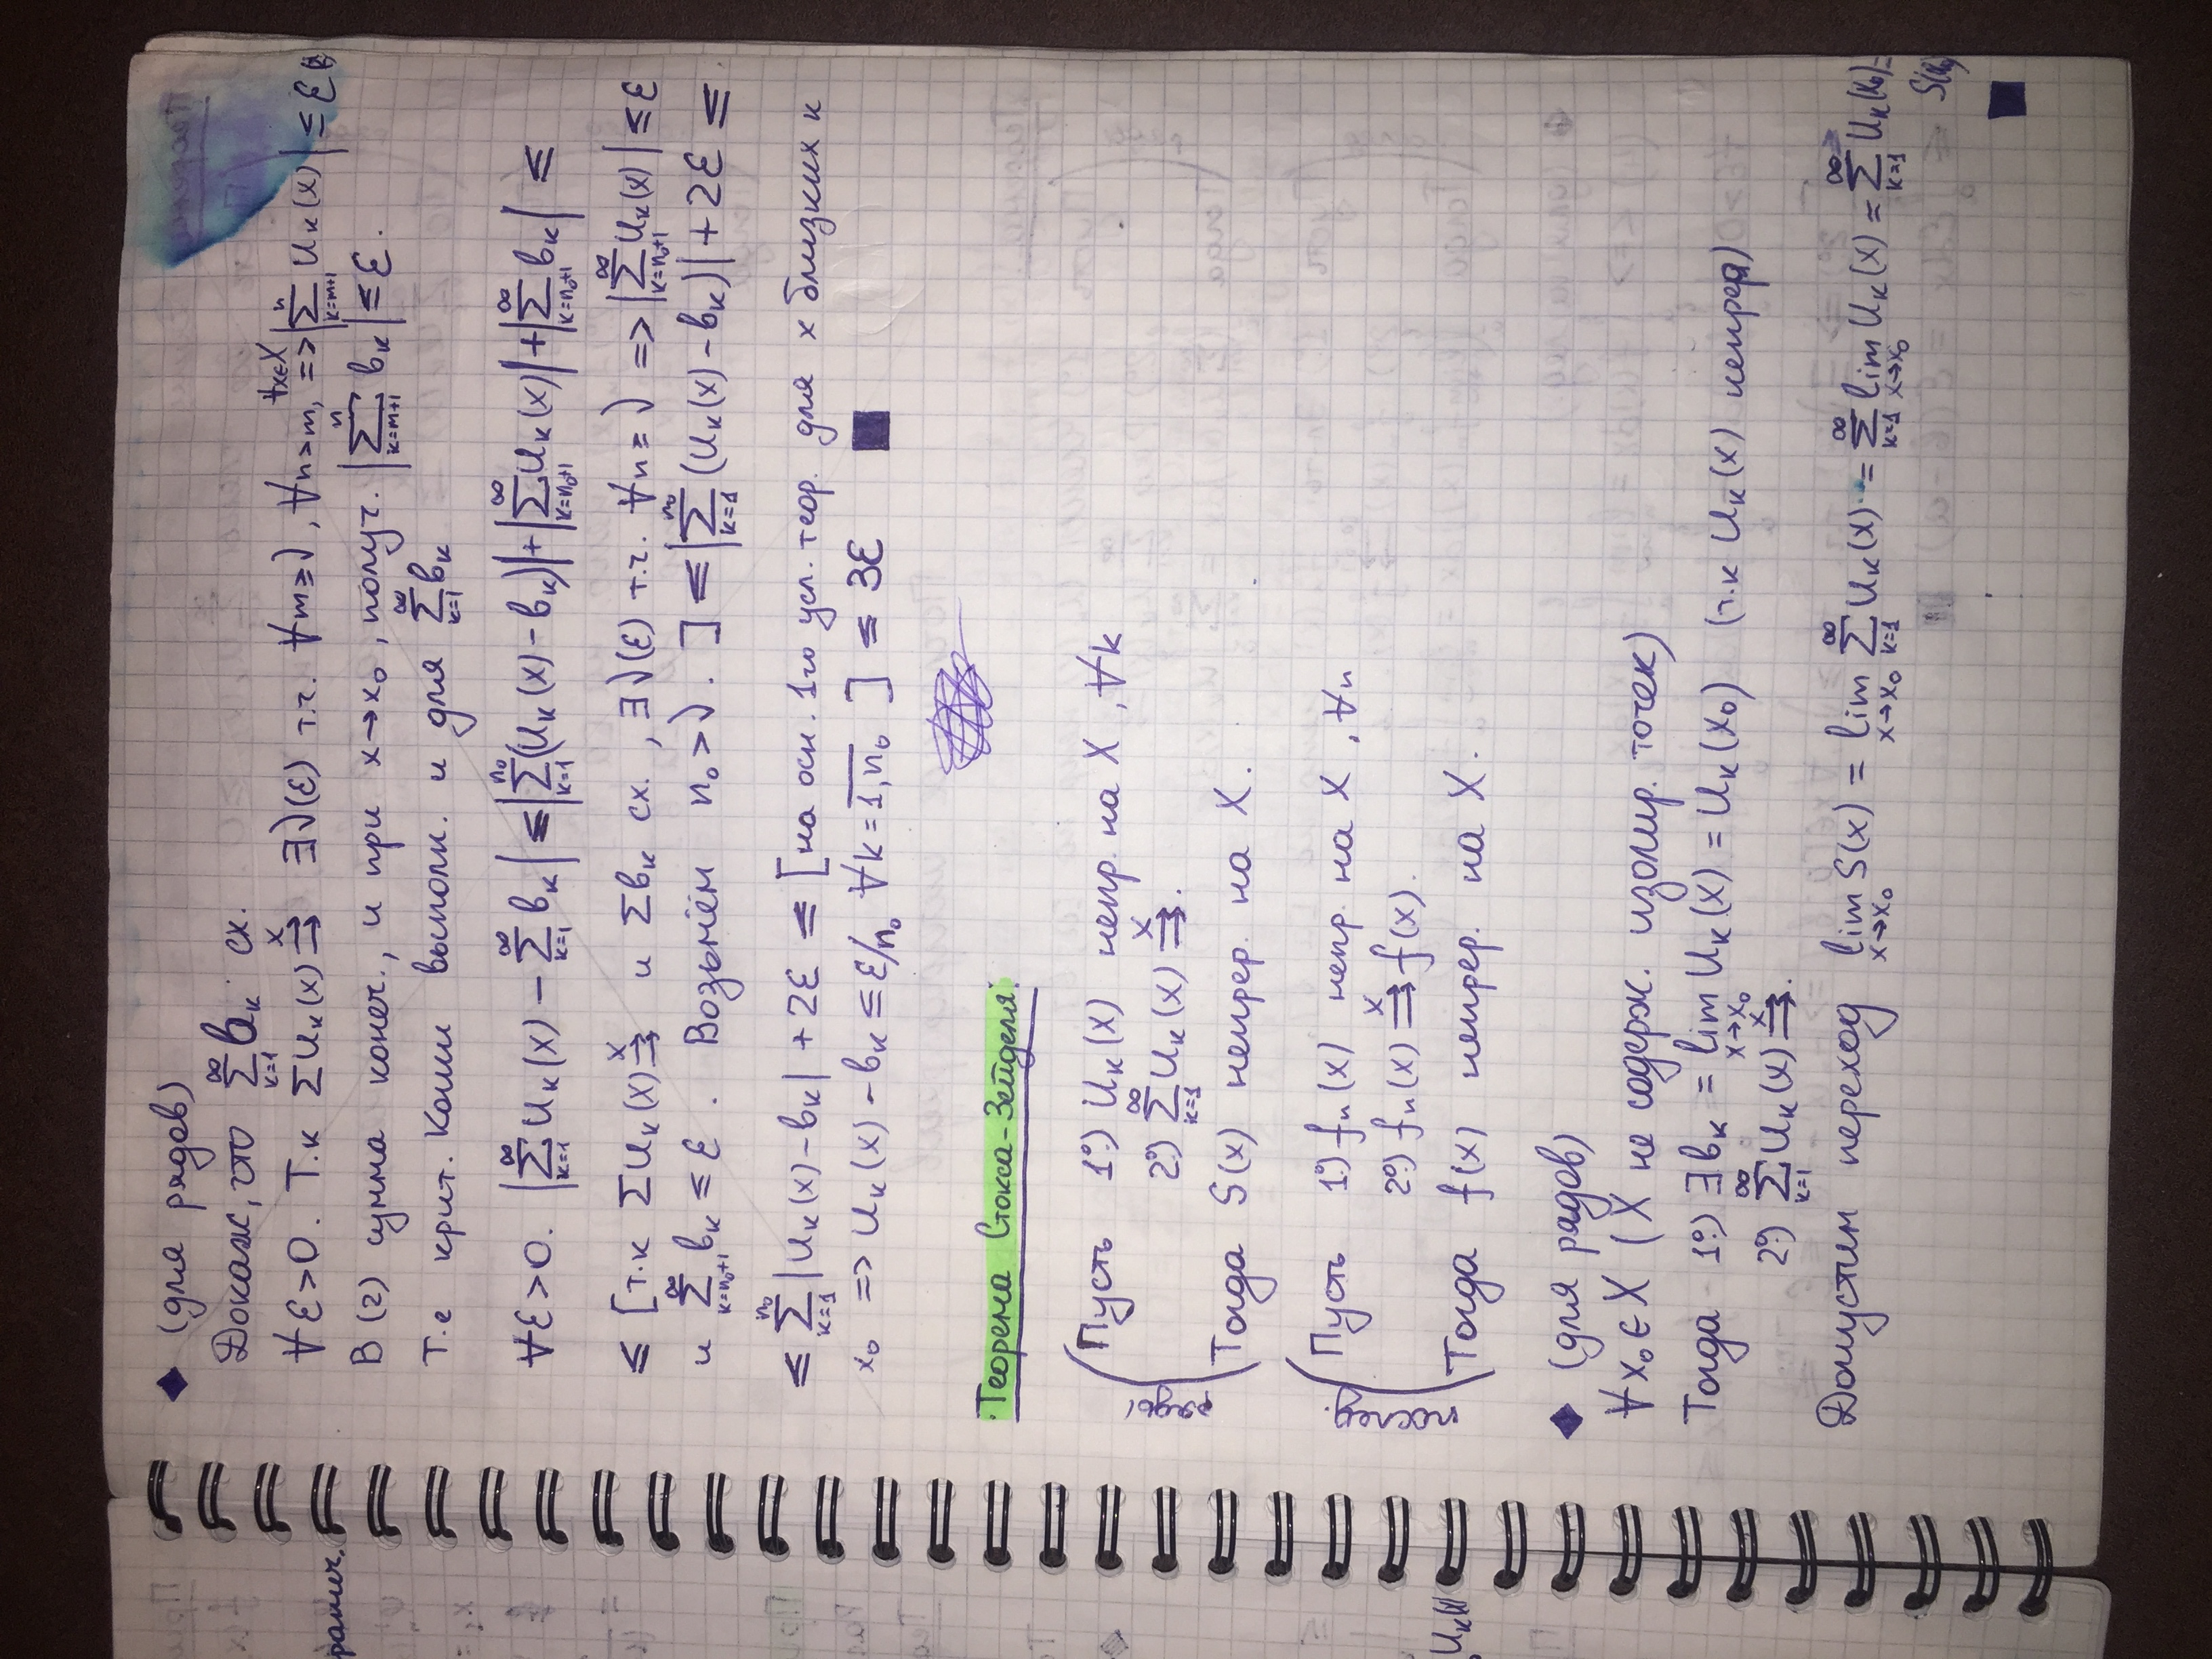 ◆ (для рядов)
Докаж, что ∑_{k=1}^{∞} b_k сх.
∀ε>0. Т.к ∑U_k(x) ⇉^X ∃√(ε) т.ч. ∀m≥√, ∀n>m, ∀x∈X => |∑_{k=m+1}^{n} U_k(x)| ≤ ε
В (2) сумма конеч., и при x→x₀, получ. |∑_{k=m+1}^{n} b_k| ≤ ε.
Т.е крит. Коши выполн. и для ∑_{k=1}^{∞} b_k
∀ε>0. |∑_{k=1}^{∞} U_k(x) − ∑_{k=1}^{∞} b_k| ≤ |∑_{k=1}^{n₀} (U_k(x) − b_k)| + |∑_{k=n₀+1}^{∞} U_k(x)| + |∑_{k=n₀+1}^{∞} b_k| ≤
≤ [т.к ∑U_k(x) ⇉^X и ∑b_k сх., ∃√(ε) т.ч. ∀n≥√ => |∑_{k=n₀+1}^{∞} U_k(x)| ≤ ε
и ∑_{k=n₀+1}^{∞} b_k ≤ ε. Возьмём n₀>√. ] ≤ |∑_{k=1}^{n₀} (U_k(x) − b_k)| + 2ε ≤
≤ ∑_{k=1}^{n₀} |U_k(x) − b_k| + 2ε ≤ [на осн. 1го усл. теор. для x близких к
x₀ => U_k(x) − b_k ≤ ε/n₀ ∀k = \overline{1,n₀} ] ≤ 3ε ■
Теорема Стокса-Зейделя:
ряды
Пусть 1°.) U_k(x) непр. на X, ∀k
2°.) ∑_{k=1}^{∞} U_k(x) ⇉^X.
Тогда S(x) непрер. на X.
послед.
Пусть 1°.) f_n(x) непр. на X, ∀n
2°.) f_n(x) ⇉^X f(x).
Тогда f(x) непрер. на X.
◆ (для рядов)
∀x₀∈X (X не содерж. изолир. точек)
Тогда 1°.) ∃b_k = lim_{x→x₀} U_k(x) = U_k(x₀) (т.к U_k(x) непрер)
2°.) ∑_{k=1}^{∞} U_k(x) ⇉^X.
Допустим переход lim_{x→x₀} S(x) = lim_{x→x₀} ∑_{k=1}^{∞} U_k(x) = ∑_{k=1}^{∞} lim_{x→x₀} U_k(x) = ∑_{k=1}^{∞} U_k(x₀) =
S(x₀)
■
ранич.
U_k(x)